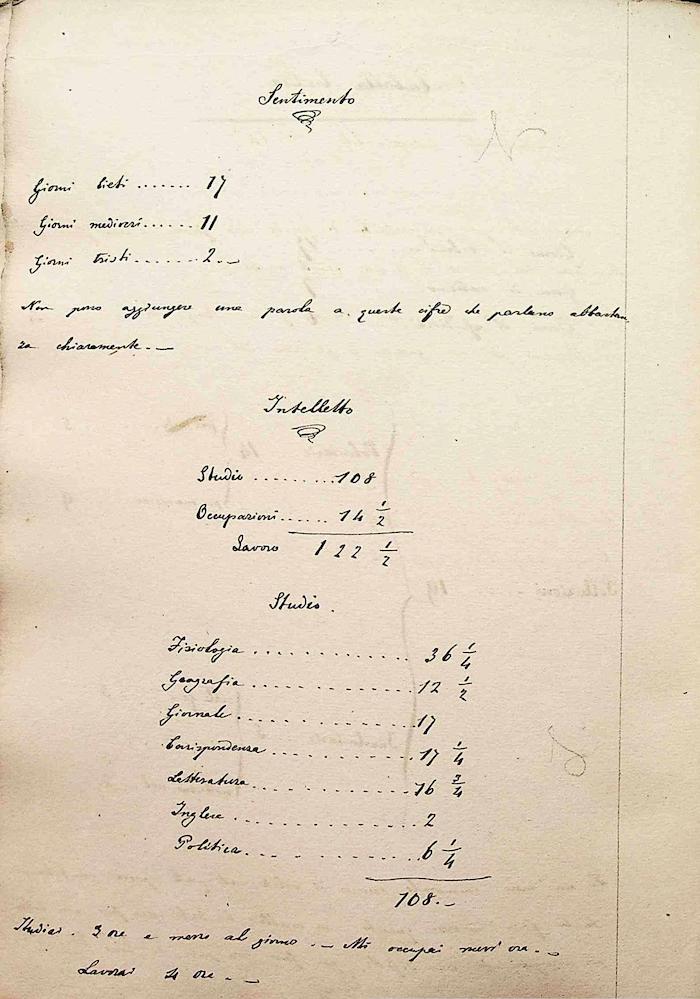 Sentimento
Giorni lieti ....... 17
Giorni mediocri...... 11
Giorni tristi ...... 2.—
Non posso aggiungere una parola a queste cifre che parlano abbastan
za chiaramente.—
Intelletto
Studio .........108
Occupazioni...... 14 1/2
Lavoro 122 1/2
Studio.
Fisiologia .............. 36 1/4
Geografia .............. 12 1/2
Giornale ..............17
Corrispondenza ............17 1/4
Letteratura..............16 3/4
Inglese .............. 2
Politica..............6 1/4
108.—
Studiai. 3 ore e mezzo al giorno.— Mi occupai mezz'ora.—
Lavorai 4 ore.—